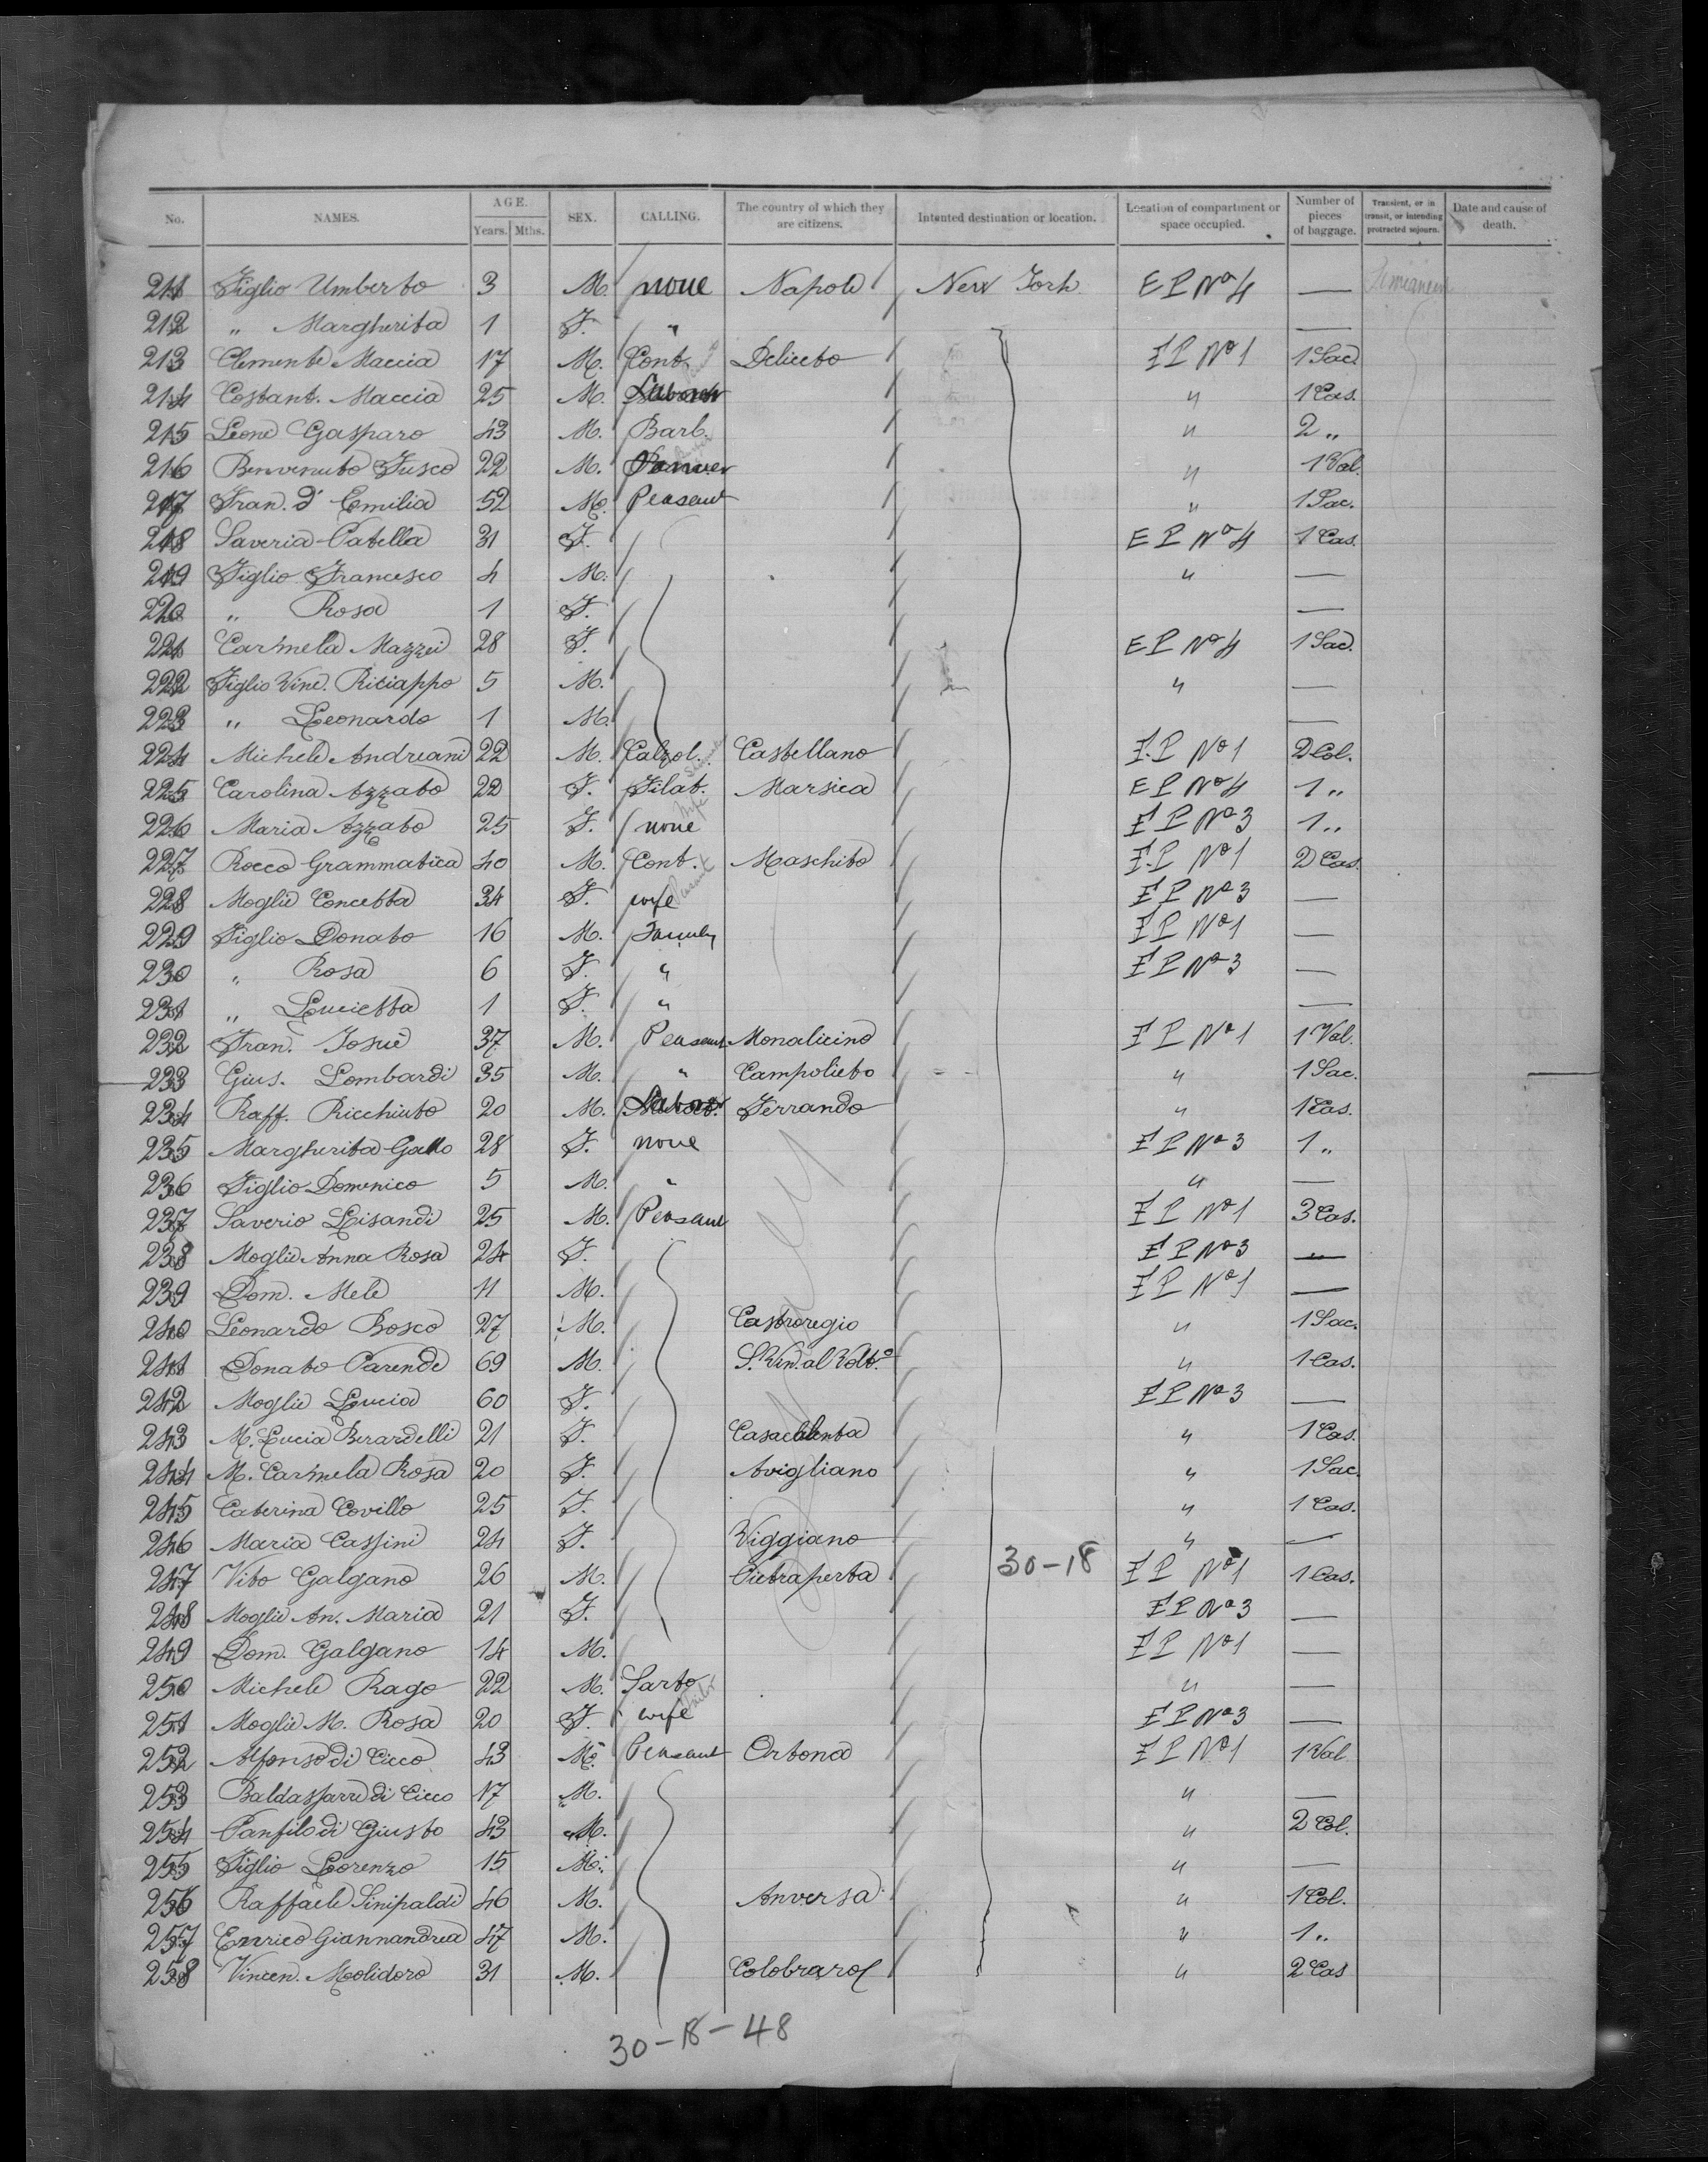 No. NAMES. AGE. Years. Mths. SEX. CALLING. The country of which they are citizens. Intented destination or location. Location of compartment or space occupied. Number of pieces of baggage. Transient, or in transit, or intending protracted sojourn. Date and cause of death.
211 Figlio Umberto 3 M. none Napoli New York E P Nº 4 —
212 „ Margherita 1 F. „ —
213 Clemente Maccia 17 M. Cont. Deliceto E P Nº 1 1 Sac.
214 Costant. Maccia 25 M. „ 1 Cas.
215 Leone Gasparo 43 M. Barb. „ 2 „
216 Benvenuto Fusco 22 M. „ 1 Val.
217 Fran. d' Emilia 52 M. Peasant „ 1 Sac.
218 Saveria Patella 31 F. E P Nº 4 1 Cas.
219 Figlio Francesco 4 M. „ —
220 „ Rosa 1 F. —
221 Carmela Mazzei 28 F. E P Nº 4 1 Sac.
222 Figlio Vinc. Riciappo 5 M. „ —
223 „ Leonardo 1 M. —
224 Michele Andreani 22 M. Calzol. Castellano E P Nº 1 2 Col.
225 Carolina Azzato 22 F. Filat. Marsica E P Nº 4 1 „
226 Maria Azzato 25 F. none E P Nº 3 1 „
227 Rocco Grammatica 40 M. Cont. Maschito E P Nº 1 2 Cas.
228 Moglie Concetta 34 F. wife E P Nº 3 —
229 Figlio Donato 16 M. Family E P Nº 1 —
230 „ Rosa 6 F. „ E P Nº 3 —
231 „ Lucietta 1 F. „ —
232 Fran. Josue 37 M. Peasant Monalicino E P Nº 1 1 Val.
233 Gius. Lombardi 35 M. „ Campolieto „ 1 Sac.
234 Raff. Ricchiuto 20 M. Labor. Ferrando „ 1 Cas.
235 Margherita Gallo 28 F. none E P Nº 3 1 „
236 Figlio Domenico 5 M. „ „ —
237 Saverio Lisandi 25 M. Peasant E P Nº 1 3 Cas.
238 Moglie Anna Rosa 24 F. E P Nº 3 —
239 Dom. Mele 11 M. E P Nº 1 —
240 Leonardo Bosco 27 M. Castroregio „ 1 Sac.
241 Donato Parende 69 M. S. Vin. al Volt.º „ 1 Cas.
242 Moglie Lucia 60 F. E P Nº 3 —
243 M. Lucia Berardelli 21 F. „ 1 Cas.
244 M. Carmela Rosa 20 F. Avigliano „ 1 Sac.
245 Caterina Covillo 25 F. „ 1 Cas.
246 Maria Cassini 24 F. Viggiano „ —
247 Vito Galgano 26 M. Pietraperta 30-18 E P Nº 1 1 Cas.
248 Moglie An. Maria 21 F. E P Nº 3 —
249 Dom. Galgano 14 M. E P Nº 1 —
250 Michele Rago 22 M. Sarto „ —
251 Moglie M. Rosa 20 F. wife E P Nº 3 —
252 Alfonso di Cicco 43 M. Peasant Ortona E P Nº 1 1 Val.
253 Baldassarre di Cicco 17 M. „ —
254 Panfilo di Giusto 43 M. „ 2 Col.
255 Figlio Lorenzo 15 M. „ —
256 Raffaele Sinipaldi 46 M. Anversa „ 1 Col.
257 Enrico Giannandrea 47 M. „ 1 „
258 Vincen. Molidoro 31 M. Colobraro „ 2 Cas
30-18-48